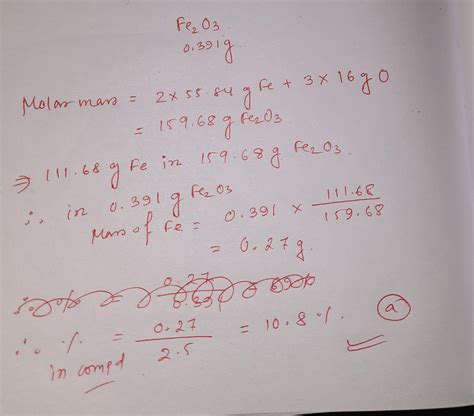 Fe₂O₃
0.391g
Molar mass = 2×55.84 g Fe + 3×16 g O
= 159.68 g Fe₂O₃
⇒ 111.68 g Fe in 159.68 g Fe₂O₃
∴ in 0.391 g Fe₂O₃
Mass of Fe = 0.391 × 111.68/159.68
= 0.27 g.
∴ % = 0.27/2.5 = 10.8 %. (a)
in compd